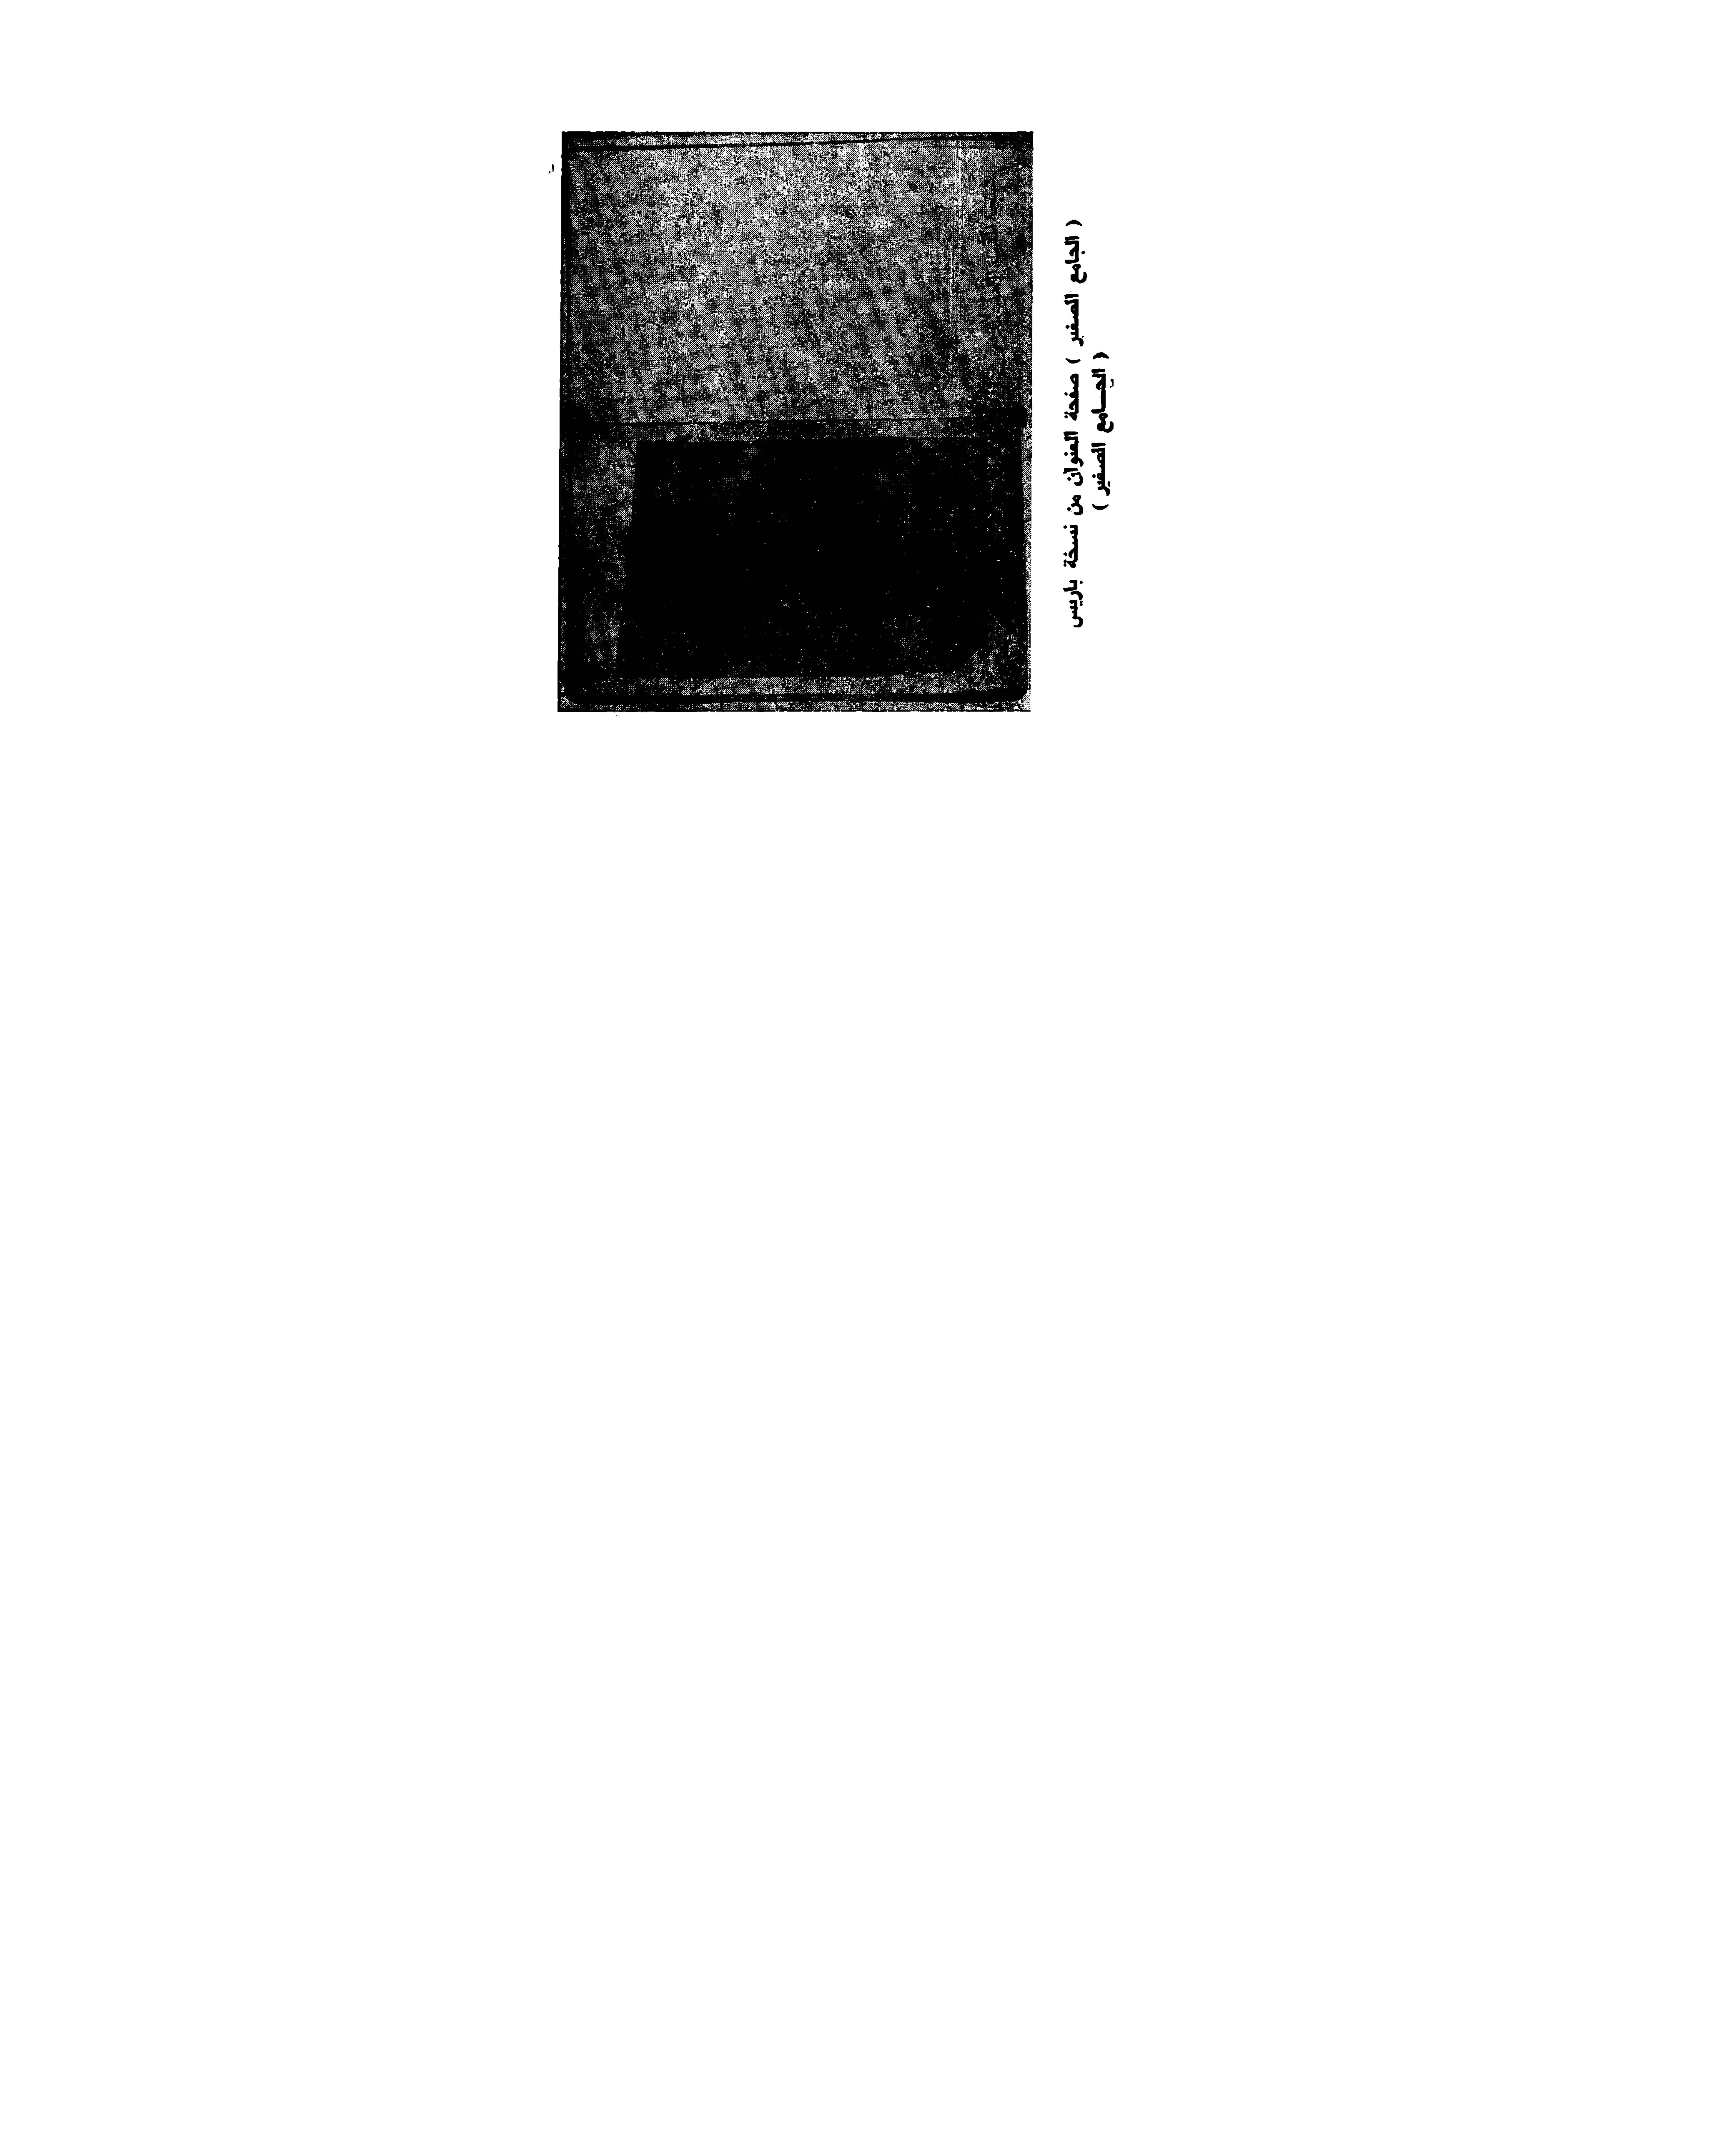 ( الجامع الصغير ) صفحة العنوان من نسخة باريس
( الجـــامع الصغير )